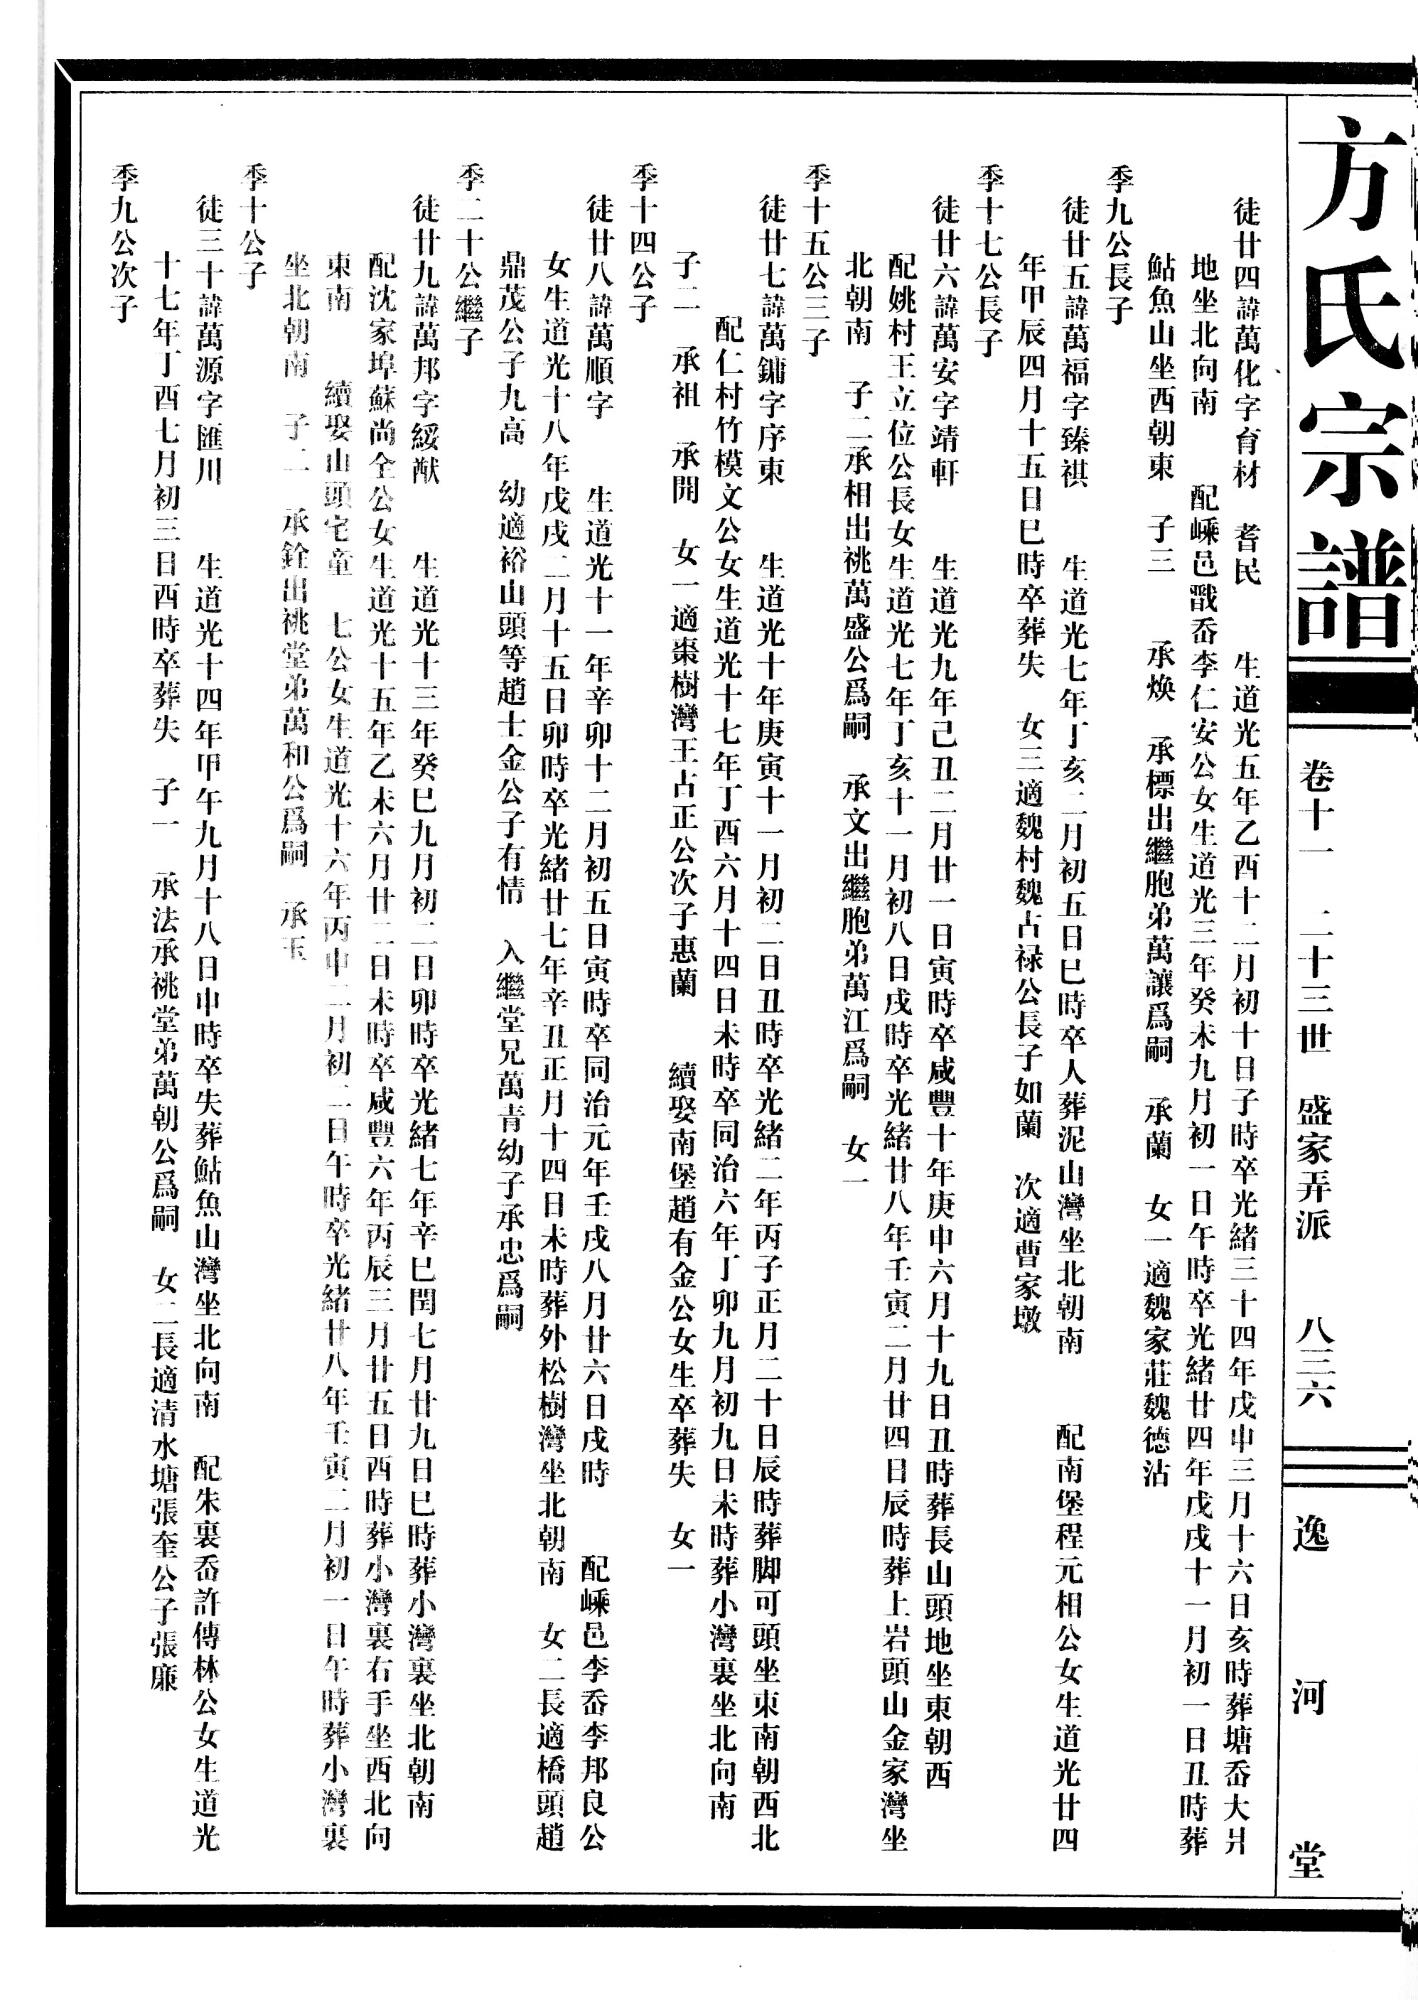 方氏宗譜
卷十一　二十三世　盛家弄派　八三六
逸河堂
徒廿四諱萬化字育材　耆民　生道光五年乙酉十二月初十日子時卒光緒三十四年戊申三月十六日亥時葬塘岙大爿
地坐北向南　配嵊邑戬岙李仁安公女生道光三年癸未九月初一日午時卒光緒廿四年戊戌十一月初一日丑時葬
鮎魚山坐西朝東　子三　承煥　承標出繼胞弟萬讓爲嗣　承蘭　女一適魏家莊魏德沾
季九公長子
徒廿五諱萬福字臻祺　生道光七年丁亥二月初五日巳時卒人葬泥山灣坐北朝南　配南堡程元相公女生道光廿四
年甲辰四月十五日巳時卒葬失　女三適魏村魏占禄公長子如蘭　次適曹家墩
季十七公長子
徒廿六諱萬安字靖軒　生道光九年己丑二月廿一日寅時卒咸豐十年庚申六月十九日丑時葬長山頭地坐東朝西
配姚村王立位公長女生道光七年丁亥十一月初八日戌時卒光緒廿八年壬寅二月廿四日辰時葬上岩頭山金家灣坐
北朝南　子二承相出祧萬盛公爲嗣　承文出繼胞弟萬江爲嗣　女一
季十五公三子
徒廿七諱萬鏞字序東　生道光十年庚寅十一月初二日丑時卒光緒二年丙子正月二十日辰時葬脚可頭坐東南朝西北
配仁村竹模文公女生道光十七年丁酉六月十四日未時卒同治六年丁卯九月初九日未時葬小灣裏坐北向南
子二　承祖　承開　女一適棗樹灣王占正公次子惠蘭　續娶南堡趙有金公女生卒葬失　女一
季十四公子
徒廿八諱萬順字　生道光十一年辛卯十二月初五日寅時卒同治元年壬戌八月廿六日戌時　配嵊邑李岙李邦良公
女生道光十八年戊戌二月十五日卯時卒光緒廿七年辛丑正月十四日未時葬外松樹灣坐北朝南　女二長適橋頭趙
鼎茂公子九高　幼適裕山頭等趙士金公子有情　入繼堂兄萬青幼子承忠爲嗣
季二十公繼子
徒廿九諱萬邦字綏猷　生道光十三年癸巳九月初二日卯時卒光緒七年辛巳閏七月廿九日巳時葬小灣裏坐北朝南
配沈家埠蘇尚全公女生道光十五年乙未六月廿二日未時卒咸豐六年丙辰三月廿五日酉時葬小灣裏右手坐西北向
東南　續娶山頭宅童　七公女生道光十六年丙申二月初二日午時卒光緒廿八年壬寅二月初一日午時葬小灣裏
坐北朝南　子二　承銓出祧堂弟萬和公爲嗣　承玉
季十公子
徒三十諱萬源字匯川　生道光十四年甲午九月十八日申時卒失葬鮎魚山灣坐北向南　配朱裏岙許傳林公女生道光
十七年丁酉七月初三日酉時卒葬失　子一　承法承祧堂弟萬朝公爲嗣　女二長適清水塘張奎公子張廉
季九公次子